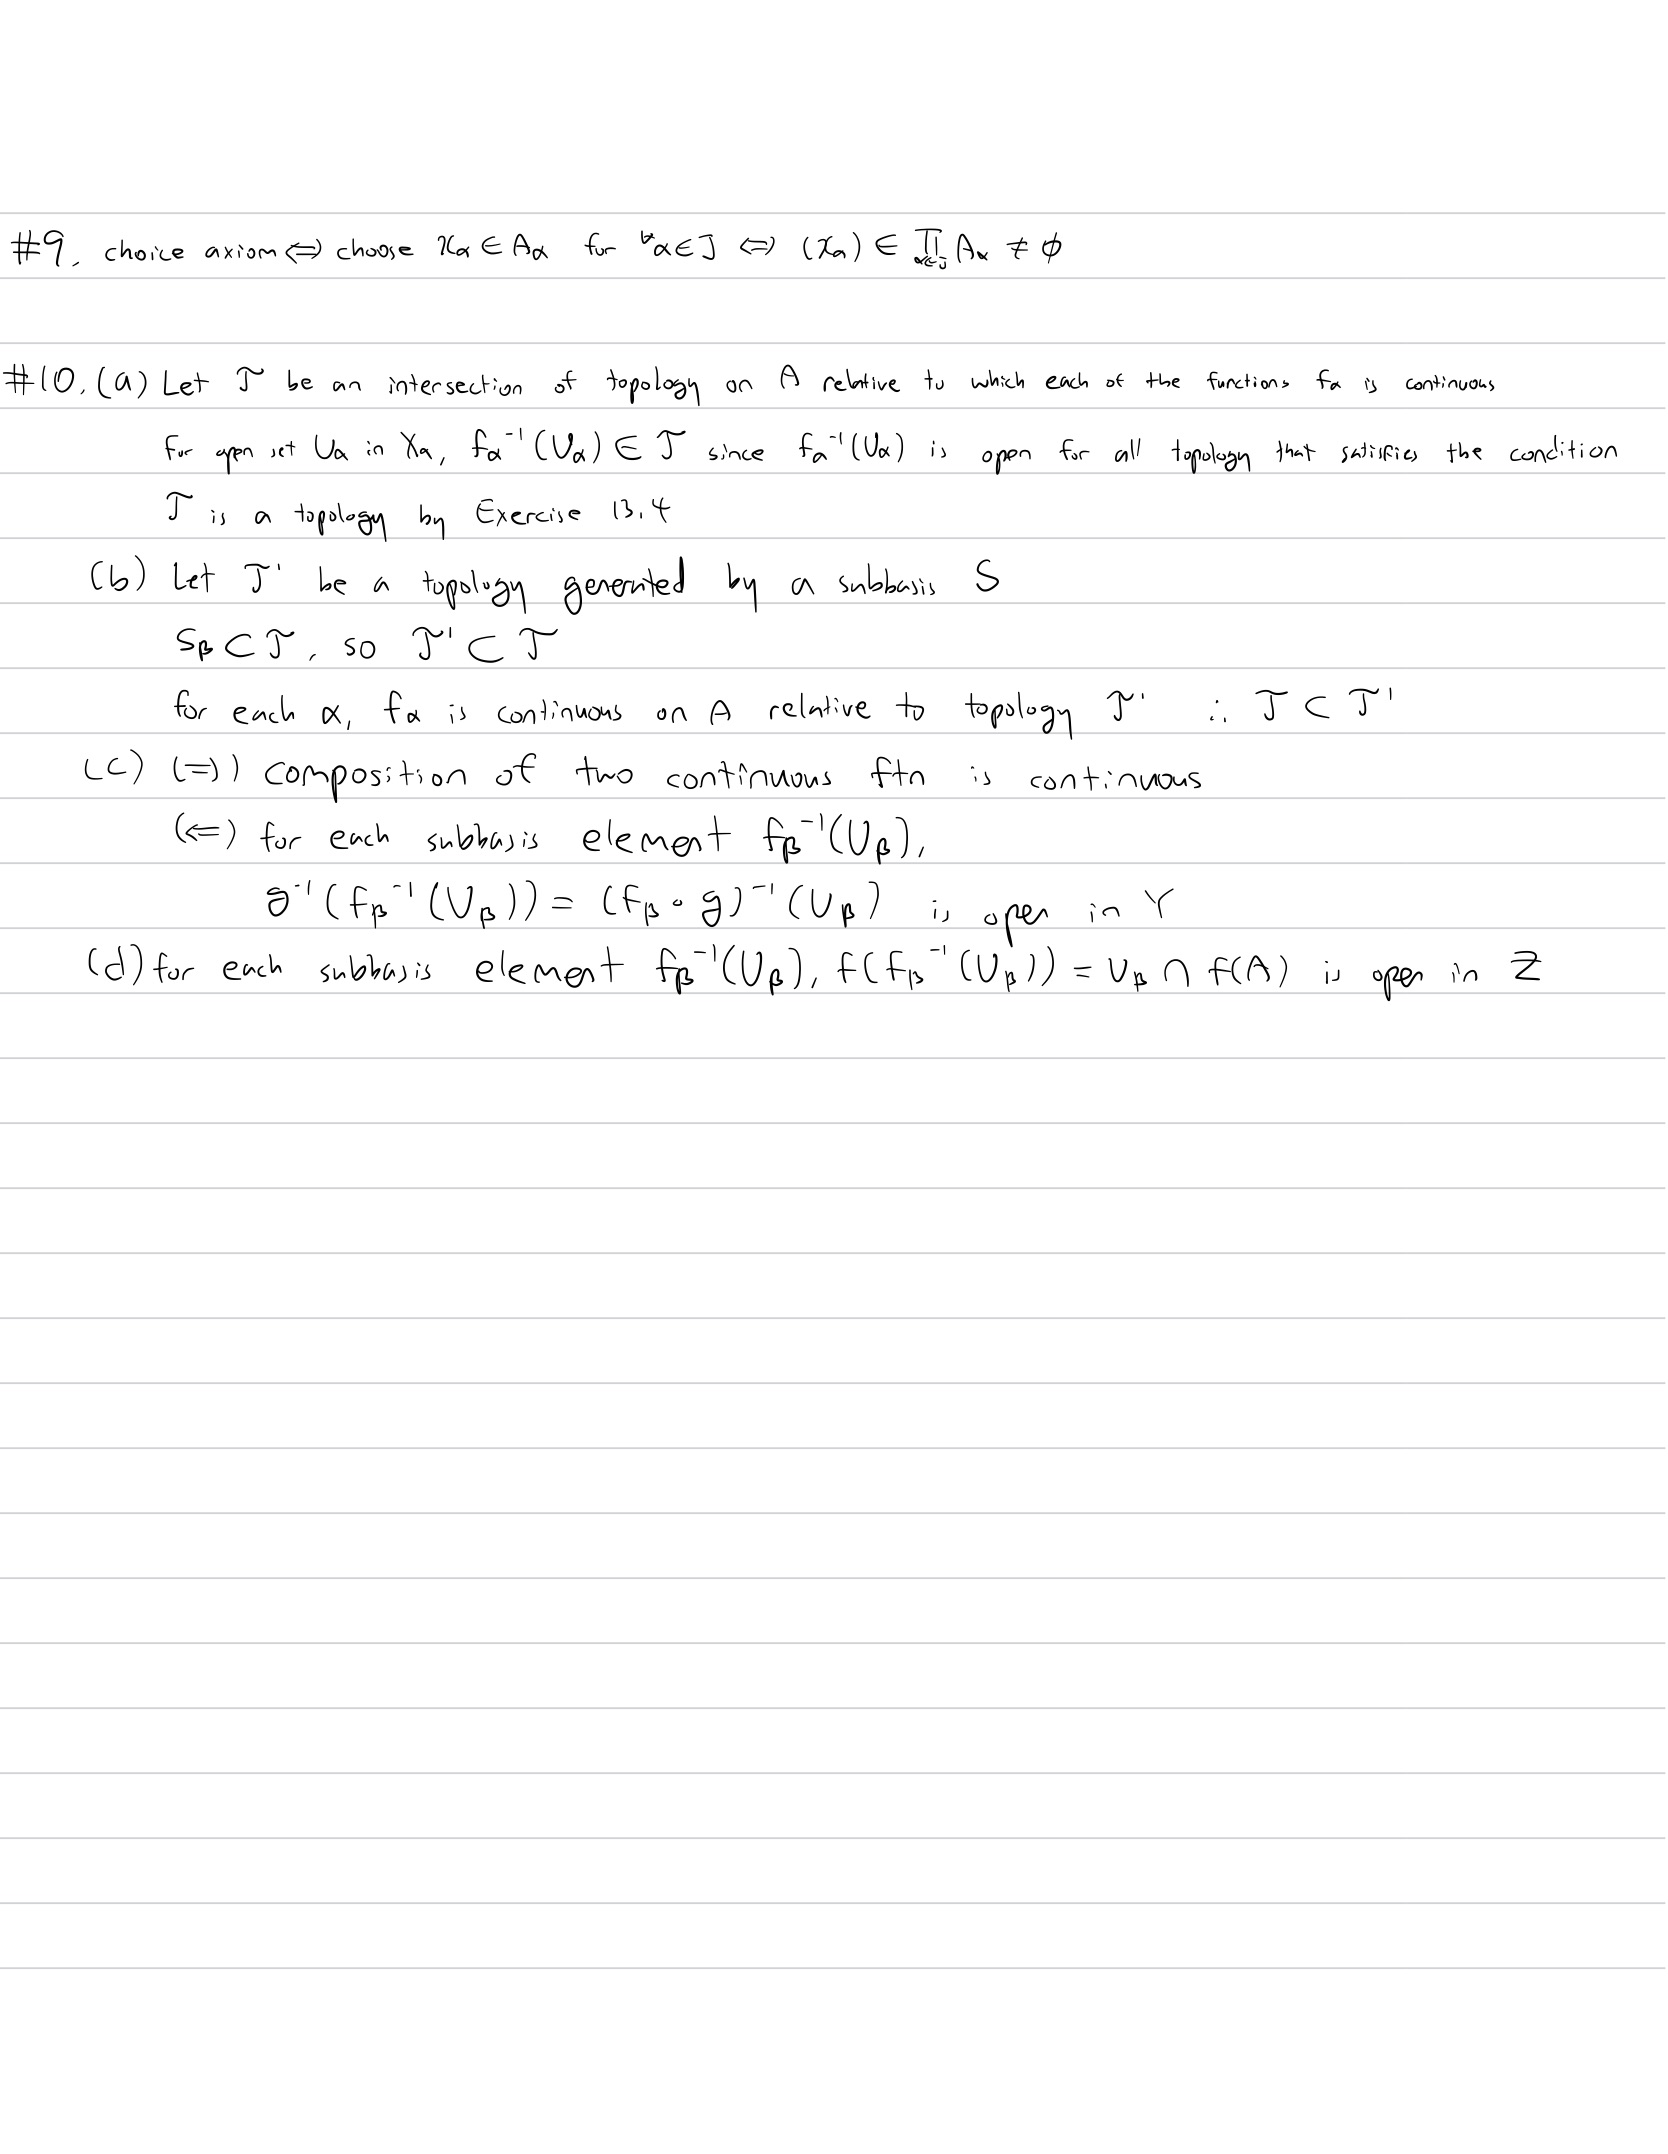 #9. choice axiom ⇔ choose xα ∈ Aα for ∀α∈J ⇔ (xα) ∈ ∏α∈J Aα ≠ ϕ
#10. (a) Let T be an intersection of topology on A relative to which each of the functions fα is continuous
For open set Uα in Xα, fα⁻¹(Uα) ∈ T since fα⁻¹(Uα) is open for all topology that satisfies the condition
T is a topology by Exercise 13.4
(b) Let T' be a topology generated by a subbasis S
Sβ ⊂ T, so T' ⊂ T
for each α, fα is continuous on A relative to topology T' ∴ T ⊂ T'
(c) (⇒) composition of two continuous ftn is continuous
(⇐) for each subbasis element fβ⁻¹(Uβ),
g⁻¹(fβ⁻¹(Uβ)) = (fβ∘g)⁻¹(Uβ) is open in Y
(d) for each subbasis element fβ⁻¹(Uβ), f(fβ⁻¹(Uβ)) = Uβ ∩ f(A) is open in Z